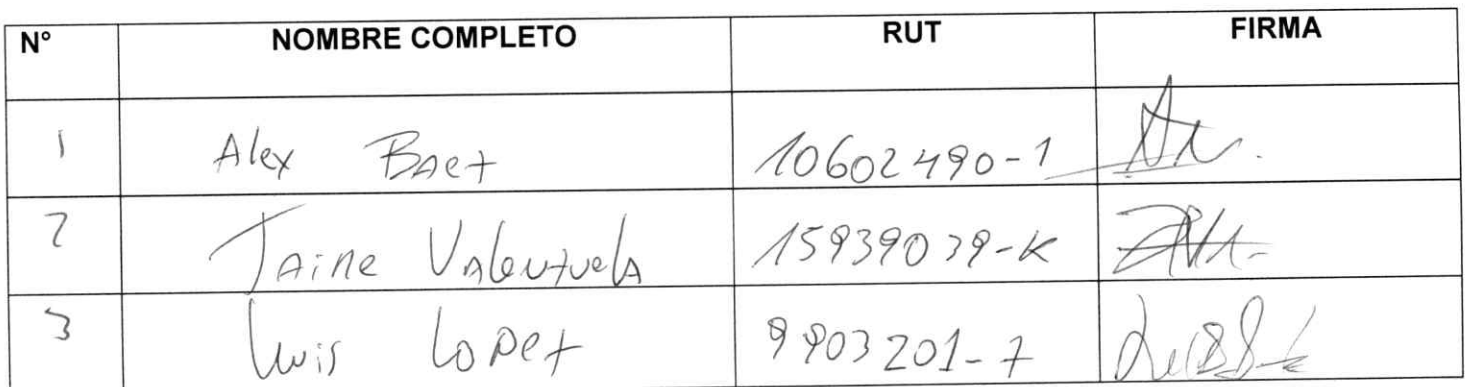 N° NOMBRE COMPLETO RUT FIRMA
1 Alex BAez 10602490-1
2 Jaime Valenzuela 15939039-K
3 Luis Lopez 9903201-7